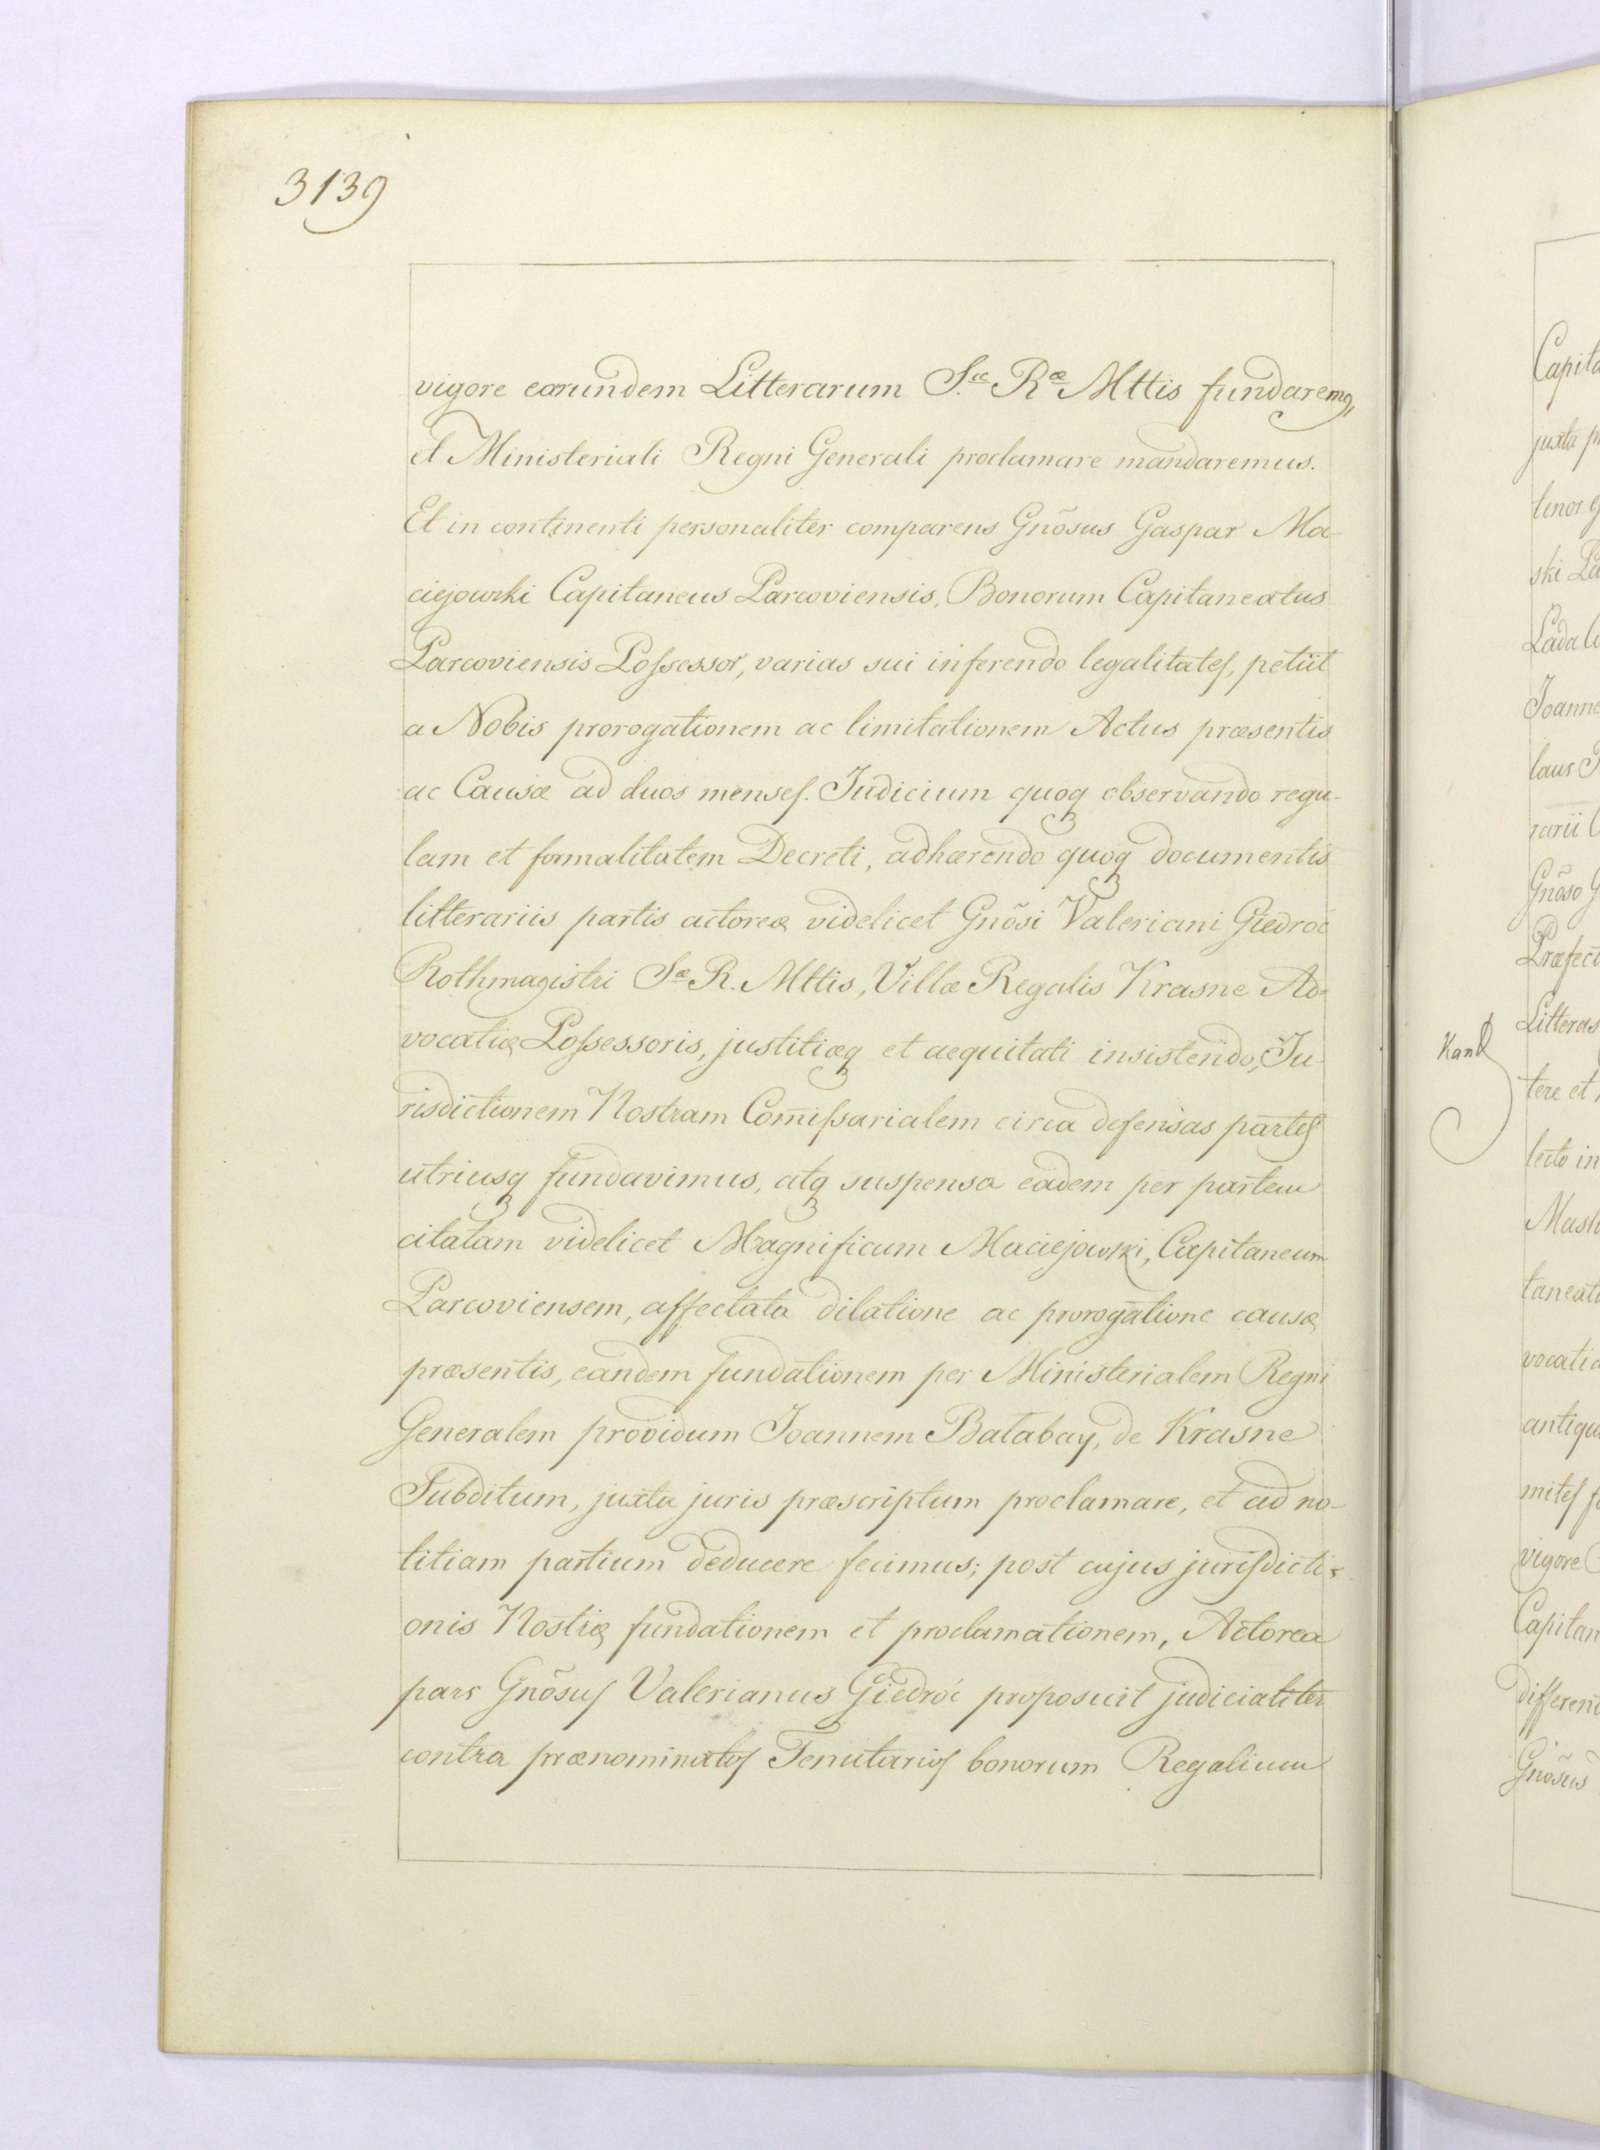 3139
vigore earundem Litterarum S.æ Ræ Mttis fundarem9,
et Ministeriali Regni Generali proclamare mandaremus.
Et in continenti personaliter comparens Gnõsus Gaspar Ma-
ciejowski Capitaneus Parcoviensis, Bonorum Capitaneatus
Parcoviensis Possessor, varias sui inferendo legalitates, petiit
a Nobis prorogationem ac limitationem Actus præsentis
ac Causæ ad duos menses. Judicium quoq observando regu-
lam et formalitatem Decreti, adhærendo quoq documentis
litterariis partis actoreæ videlicet Gnõsi Valeriani Giedroć
Rothmagistri Sæ R. Mttis, Villæ Regalis Krasne Ad-
vocatiæ Possessoris, justitiæq et aequitati insistendo, Ju-
risdictionem Nostram Comissarialem circa defensas partes
utriusq fundavimus, atq suspensa eadem per partem
citatam videlicet Magnificum Maciejowski, Capitaneum
Parcoviensem, affectata dilatione ac prorogatione causæ
præsentis, eandem fundationem per Ministerialem Regni
Generalem providum Joannem Batabay, de Krasne
Subditum, juxta juris præscriptum proclamare, et ad no-
titiam partium deducere fecimus; post cujus jurisdicti-
onis Nostræ fundationem et proclamationem, Actorea
pars Gnõsus Valerianus Giedroć proposuit judicialiter
contra prænominatos Tenutarios bonorum Regalium
Capita
juxta p
tenor g
ski La
Lada C
Joanne
laus
rarii C
Gnõso G
Præfect
Litteras
tere et
lecto in
Mast
taneatu
vocatia
antiqu
mites f
vigore
Capitan
differen
Gnõsus